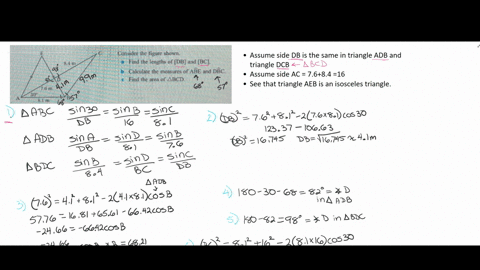 Consider the figure shown.
• Find the lengths of [DB] and [BC].
• Calculate the measures of ABE and DBC.
• Find the area of △BCD.
68° 57°
• Assume side DB is the same in triangle ADB and
triangle DCB ← △BCD
• Assume side AC = 7.6+8.4 =16
• See that triangle AEB is an isosceles triangle.
1) △ABC sin30/DB = sinB/16 = sinC/8.1
△ADB sinA/DB = sinD/8.1 = sinB/7.6
△BDC sinB/8.4 = sinD/BC = sinC/DB
2) (DB)² = 7.6² + 8.1² - 2(7.6×8.1)cos30
123.37 - 106.63
(DB)² = 16.745 DB = √16.745 ≈ 4.1m
△ADB
3) (7.6)² = 4.1² + 8.1² - 2(4.1×8.1)cosB
57.76 = 16.81 + 65.61 - 66.42cosB
-24.66 = -66.42cosB
4) 180-30-68 = 82° = ∢D
in △ADB
5) 180-82 = 98° = ∢D in △BDC